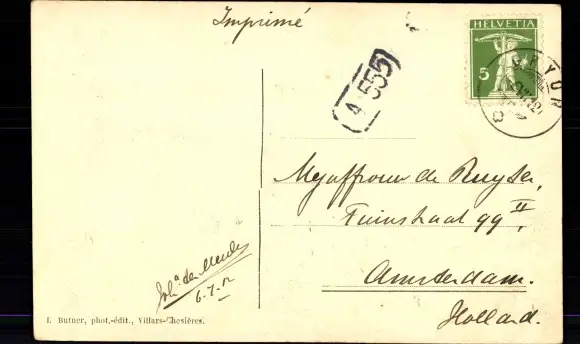 Imprimé
HELVETIA
5
4 555
GRYON
Mejuffrouw de Ruyter,
Tuinstraat 99 II,
Amsterdam.
Holland.
Joh.ª de
6.7.12
I. Butner, phot.-édit., Villars-Chesières.